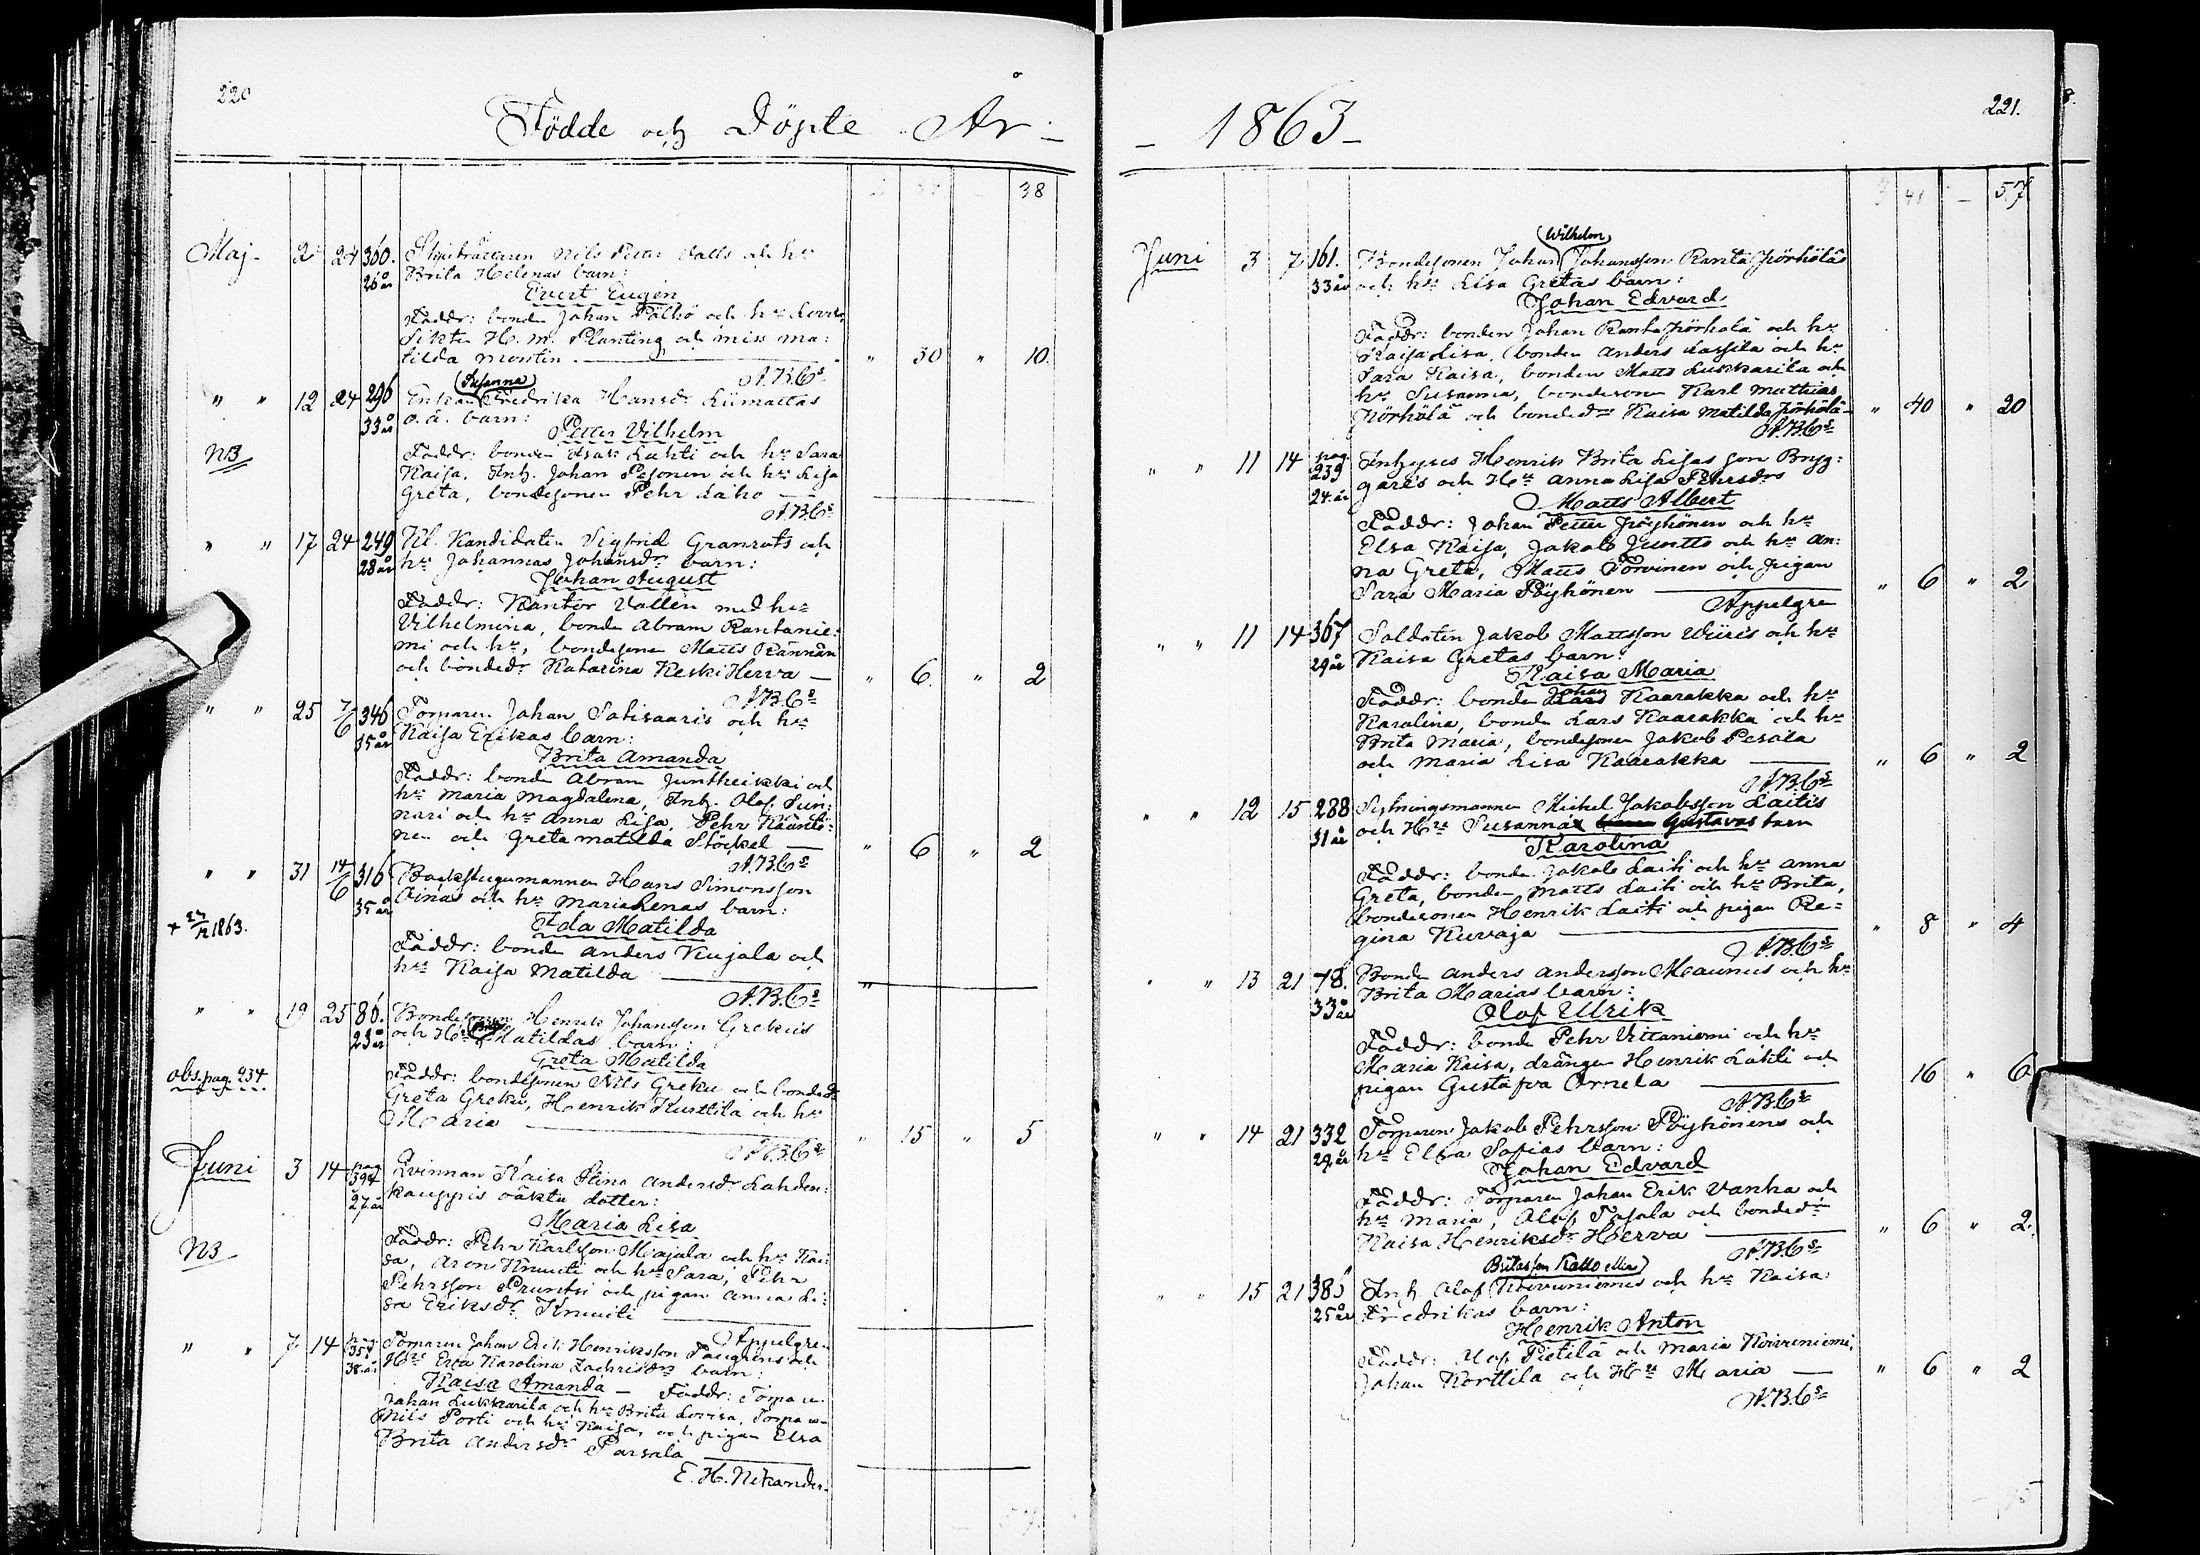 220
Födde och Döpte År -
38
Maj - 2 24 360. Nils Petter Valls och hs
26 år Brita Helenas barn:
Evert Eugén
Faddr: bonden Johan Pälkö och hs Lovisa,
H. M. Planting och miss Ma-
tilda Montin. " 30 " 10.
A.B.Cs
(Susanna)
" " 12 24 296 Enkan Fredrika Hansdr Liimattas
33 år o.ä. barn:
Petter Vilhelm
NB Faddr: bonden Isak Lahti och hs Sara
Kaisa. Inh. Johan Pesonen och hs Lisa
Greta, bondesonen Pehr Laho
A.B.Cs
" " 17 24 249 Kl. Kandidaten Sigfrid Granrots och
28 år hs Johannas Johansdr barn:
Johan August
Faddr: Kantor Vallén med hs
Vilhelmina, bonden Abram Rantanie-
mi och hs, bondesonen Matts Rännän
och bondedr Katarina Keski Herva — " 6. " 2
A.B.Cs
" " 25 7/6 346 Torparen Johan Satisaaris och hs
35 år Kaisa Erikas barn:
Brita Amanda
Faddr: bonde Abram Juntheikki och
hs Maria Magdalena, Inh. Olof Sun-
nari och hs Anna Lisa, Pehr
nen och Greta Matilda Stöckel — " 6 " 2
A.B.Cs
" " 31 14/6 316 Backstugumannen Hans Simonsson
35 år Oinas och hs Maria Lenas barn:
Ida Matilda
+ 27/12 1863. Faddr: bonde Anders Kujala och
hs Kaisa Matilda
A.B.Cs
" " 19 25 86. Bondesonen Henrik Johansson Grekus
23 år och Hs Matildas barn:
Greta Matilda
obs. pag. 234 Faddr: bondesonen Nils Greku och bondedr
Greta Greku, Henrik Kurttila och hs
Maria " 15 " 5
A.B.Cs
Juni 3 14 pag 394 Qvinnan Kaisa Stina Andersdr Lahden-
27 år kauppis oäkta dotter:
Maria Lisa
NB Faddr: Pehr Karlsson Majala och hs Kai-
sa, Aron Knuuti och hs Sara, Pehr
Pehrsson Pruntsi och pigan Anna Li-
sa Eriksdr Knuuti
Appelgren
" " 7 14 pag 357 Torparen Johan Erik Henriksson Taugrens och
38 år Hs Eva Karolina Zachrisdrs barn:
Kaisa Amanda — Faddr: Torparen
Johan Lukkarila och hs Brita Lovisa, Torparen
Nils Porti och hs Kaisa, och pigan Elsa
Brita Andersdr Parsala
E. H. Nikander.
221.
- 1863 -
57
(Wilhelm)
Juni 3 7 161. Bondesonen Johan Johansson Ranta Jörhölä
33 år och hs Lisa Gretas barn:
Johan Edvard
Faddr: bonden Johan Ranta Jörhölä och hs
Kaisa Lisa, bonden Anders Kassila och hs
Sara Kaisa, bonden Matts Lukkarila och
hs Susanna, bondeson Karl Mathias
Jörhölä och bondedr Kaisa Matilda Jörhölä " 40 " 20
A.B.Cs
" " 11 14 pag. 239 Inhyses Henrik Brita Lisas son Brygg-
24 år gare's och Hs Anna Lisa Pehrsdrs
Matts Albert
Faddr: Johan Petter Pöyhönen och hs
Elsa Kaisa, Jakob Juntto och hs An-
na Greta, Matts Torvinen och pigan
Sara Maria Pöyhönen " 6 " 2
Appelgren
" " 11 14 367 Soldaten Jakob Mattsson Wiiris och hs
29 år Kaisa Gretas barn:
Kaisa Maria
Faddr: bonde Johan Kaarakka och hs
Karolina, bonden Lars Kaarakka och hs
Brita Maria, bondesonen Jakob Pesala
och Maria Lisa Kaarakka " 6 " 2
A.B.Cs
" " 12 15 288 Sytningsmannen Michel Jakobsson Laitis
31 år och Hs Susanna Gustavas barn
Karolina
Faddr: bonde Jakob Laiti och hs Anna
Greta, bonden Matts Laiti och hs Brita,
bondesonen Henrik Laiti och pigan Re-
gina Kuvaja " 8 " 4
A.B.Cs
" " 13 21 78. Bonde Anders Andersson Maunus och hs
33 år Brita Marias barn:
Olof Ulrik
Faddr: bonde Pehr Vittaniemi och hs
Maria Kaisa, drängen Henrik Lahti och
pigan Gustafva Ornela 16 " 6
A.B.Cs
" " 14 21 332 Torparen Jakob Pehrsson Pöyhönens och
29 år hs Elsa Sofias barn:
Johan Edvard
Faddr: Torparen Johan Erik Vanha och
hs Maria, Olof Tapala och bondedr
Kaisa Henriksdr Herva " 6 " 2.
A.B.Cs
(Britasson Kallo eller)
" " 15 21 385 Inh. Olof Koivuniemis och hs Kaisa
25 år Fredrikas barn:
Henrik Anton
Faddr: Olof Pietilä och Maria Koivuniemi,
Johan Korttila och Hs Maria — " 6 " 2
A.B.Cs